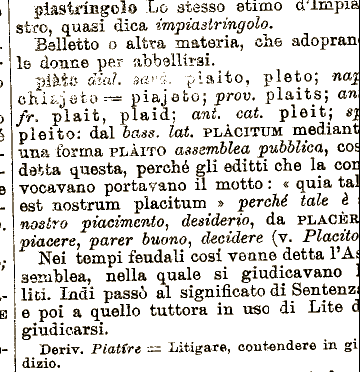 piastringolo Lo stesso etimo d'Impia
stro, quasi dica impiastringolo.
Belletto o altra materia, che adopran
le donne per abbellirsi.
piàto dial. sard. piaito, pleto; nap
chiajeto = piajeto; prov. plaits; an
fr. plait, plaid; ant. cat. pleit; sp
pleito: dal bass. lat. PLÀCITUM mediant
una forma PLÀITO assemblea pubblica, cos
detta questa, perché gli editti che la con
vocavano portavano il motto: « quia tal
est nostrum placitum » perché tale è
nostro piacimento, desiderio, da PLACÈR
piacere, parer buono, decidere (v. Placito
Nei tempi feudali cosí venne detta l'As
semblea, nella quale si giudicavano
liti. Indi passò al significato di Sentenza
e poi a quello tuttora in uso di Lite d
giudicarsi.
Deriv. Piatíre = Litigare, contendere in gi
dizio.